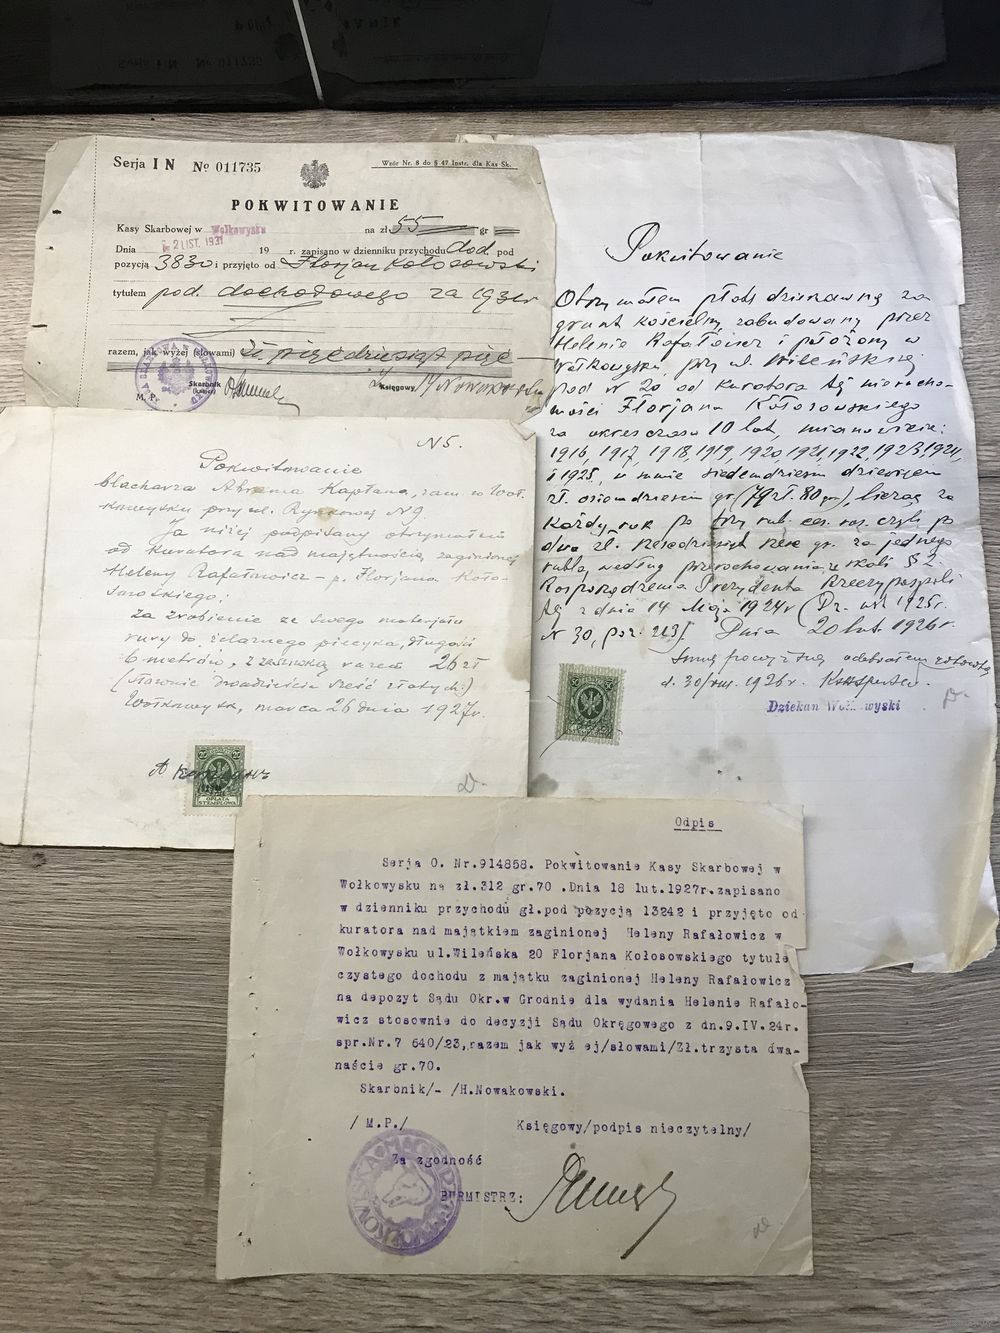 Serja I N № 011735
Wzór Nr. 8 do § 47 Instr. dla Kas Sk.
POKWITOWANIE
Kasy Skarbowej w Wołkowysku na zł 55 gr
Dnia 2 LIST. 1931 19 r. zapisano w dzienniku przychodu dod. pod
pozycją 3830 i przyjęto od Florjan Kołosowski
tytułem pod. dochodowego za 1931 r
razem, jak wyżej (słowami) Zł. pięćdziesiąt pięć
Skarbnik
Księgowy
M. P.
Pokwitowanie
Otrzymałem płodz dzierżawną za
grunt kościelny, zabudowany przez
Helenię Rafałowicz i położony w
Wołkowysku, przy ul. Wileńskiej
pod N 20 od kuratora tej nierucho-
mości Florjana Kołosowskiego
za okres czasu 10 lat, mianowicie:
1916, 1917, 1918, 1919, 1920, 1921, 1922, 1923, 1924,
i 1925, w sumie siedemdziesiąt dziewięć
zł. osiemdziesiąt gr. (79 zł. 80 gr), licząc za
każdy rok po trzy rub. ros. czyli po
dwa zł. sześćdziesiąt sześć gr. za jednego
rubla, według przerachowania ze skali § 2.
Rozporządzenia Prezydenta Rzeczypospoli-
tej z dnia 14 Maja 1924 r (Dz. ust 1925 r.
N 30, poz. 213) Dnia 20 lut. 1926 r.
Sumę powyższą odebrałem gotówką
d. 30/VIII. 1926 r.
Dziekan Wołkowyski
N 5.
Pokwitowanie
blacharza Abrama Kapłana, zam. w Woł-
kowysku przy ul. Rynkowej N 9.
Ja niżej podpisany otrzymałem
od kuratora nad majętnością zaginionej
Heleny Rafałowicz - p. Florjana Koło-
sowskiego:
Za zrobienie ze swego materjału
rury do żelaznego piecyka, długości
6 metrów, z zasuwką razem 26 zł
(słownie dwadzieścia sześć złotych.)
Wołkowysk, marca 26 dnia 1927 r.
OPŁATA
STEMPLOWA
Odpis
Serja O. Nr.914858. Pokwitowanie Kasy Skarbowej w
Wołkowysku na zł.312 gr.70 .Dnia 18 lut.1927r.zapisano
w dzienniku przychodu gł.pod pozycją 13242 i przyjęto od
kuratora nad majątkiem zaginionej Heleny Rafałowicz w
Wołkowysku ul.Wileńska 20 Florjana Kołosowskiego tytułe
czystego dochodu z majątku zaginionej Heleny Rafałowicz
na depozyt Sądu Okr.w Grodnie dla wydania Helenie Rafało-
wicz stosownie do decyzji Sądu Okręgowego z dn.9.IV.24r.
spr.Nr.7 640/23,razem jak wyż ej/słowami/Zł.trzysta dwa-
naście gr.70.
Skarbnik/-/H.Nowakowski.
/ M.P./ Księgowy/podpis nieczytelny/
Za zgodność
BURMISTRZ: